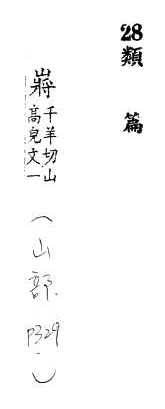 28類 篇
嶈
千羊切山
高皃文一
(山部. P329.)